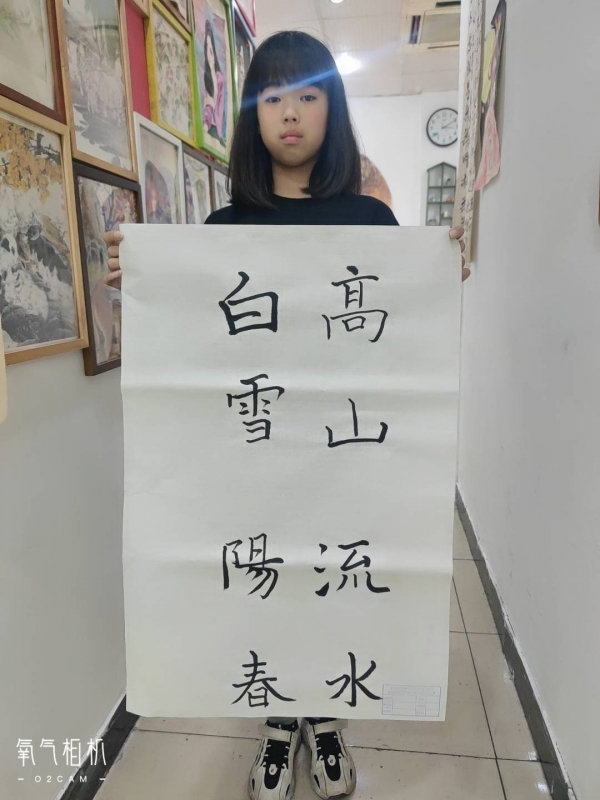 高山流水
白雪陽春
氧气相机
O2CAM